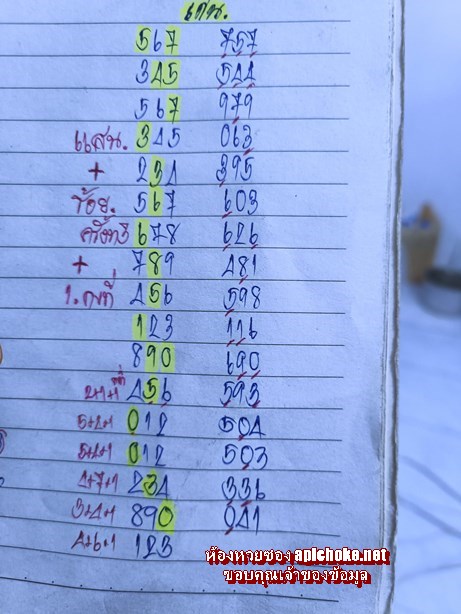 เสน.
567 757
345 544
567 979
แสน. 345 063
+ 234 395
ร้อย. 567 603
678 626
+ 789 481
456 598
123 116
890 690
456 593
5+4+1 012 504
5+4+1 012 503
4+7+1 234 336
3+4+1 890 041
4+6+1 123
ห้องหวยซอง apichoke.net
ขอบคุณเจ้าของข้อมูล